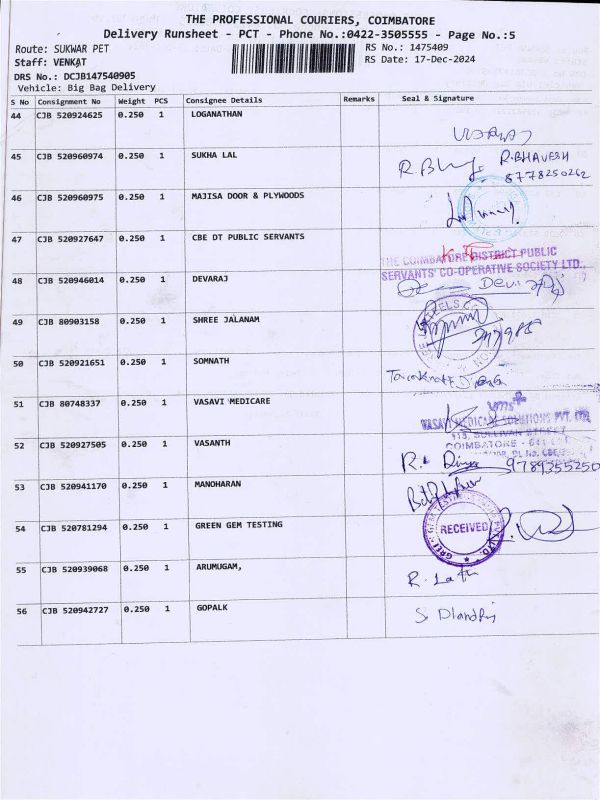 THE PROFESSIONAL COURIERS, COIMBATORE
Delivery Runsheet - PCT - Phone No.:0422-3505555 - Page No.:5
Route: SUKWAR PET
RS No.: 1475409
Staff: VENKAT
RS Date: 17-Dec-2024
DRS No.: DCJB147540905
Vehicle: Big Bag Delivery
S No Consignment No Weight PCS Consignee Details Remarks Seal & Signature
44 CJB 520924625 0.250 1 LOGANATHAN
45 CJB 520960974 0.250 1 SUKHA LAL R.BHAVESH
8778250262
46 CJB 520960975 0.250 1 MAJISA DOOR & PLYWOODS
47 CJB 520927647 0.250 1 CBE DT PUBLIC SERVANTS
THE COIMBATORE DISTRICT PUBLIC
SERVANTS' CO-OPERATIVE SOCIETY LTD.,
48 CJB 520946014 0.250 1 DEVARAJ
49 CJB 80903158 0.250 1 SHREE JALANAM
50 CJB 520921651 0.250 1 SOMNATH
51 CJB 80748337 0.250 1 VASAVI MEDICARE
vms
VASAVI MEDICAL SOLUTIONS PVT. LTD.
113, SULLIVAN STREET
COIMBATORE - 641
52 CJB 520927505 0.250 1 VASANTH
9789355250
53 CJB 520941170 0.250 1 MANOHARAN
54 CJB 520781294 0.250 1 GREEN GEM TESTING
RECEIVED
55 CJB 520939068 0.250 1 ARUMUGAM,
56 CJB 520942727 0.250 1 GOPALK